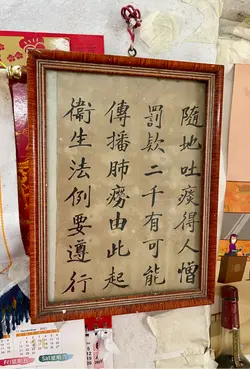 隨地吐痰得人憎
罰欵二千有可能
傳播肺癆由此起
衛生法例要遵行
Fri星期五 Sat星期六